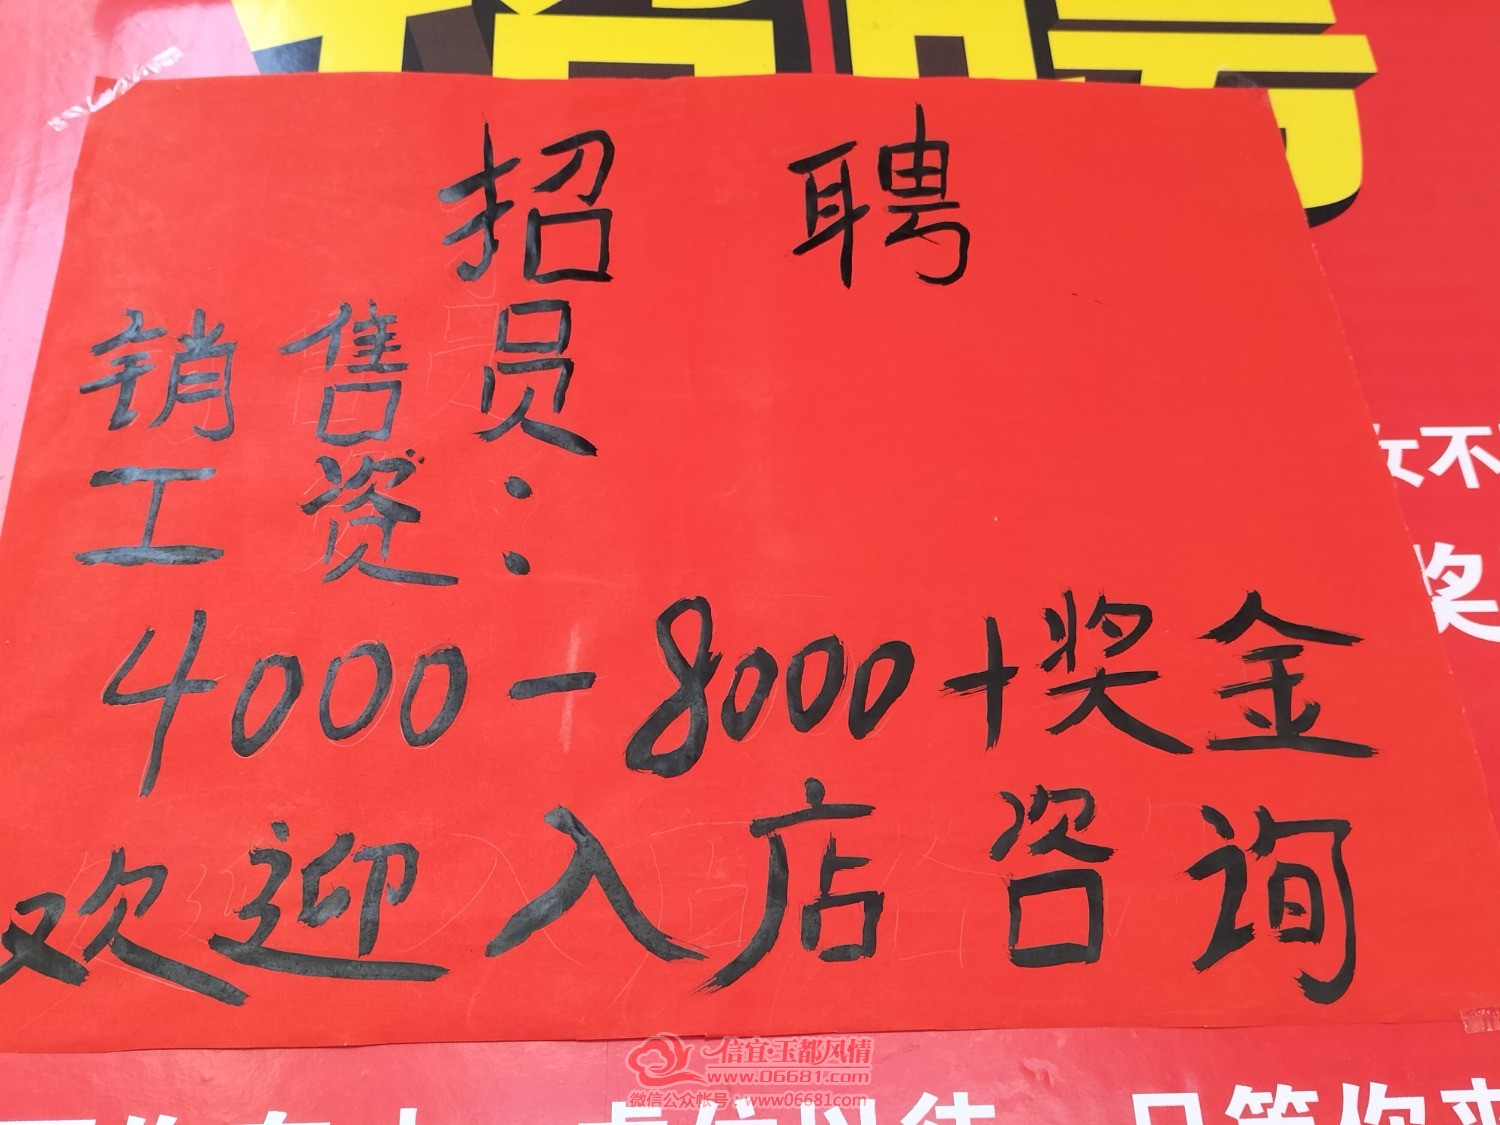 招聘
招聘
销售员
工资:
4000-8000+奖金
欢迎入店咨询
女不
奖
信宜·玉都风情
www.06681.com
微信公众帐号:www06681com
虚位以待 只等你来